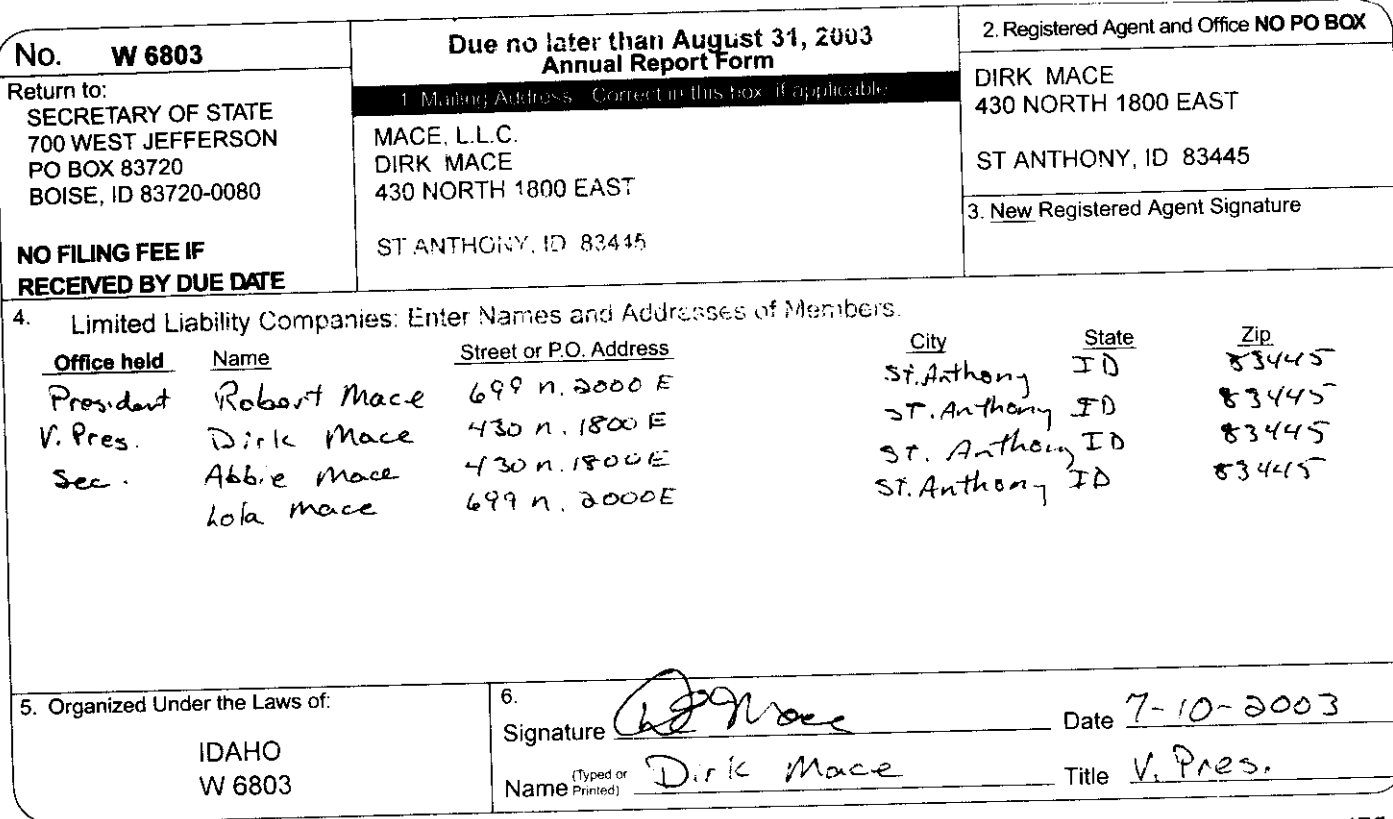 No. W 6803
Return to:
SECRETARY OF STATE
700 WEST JEFFERSON
PO BOX 83720
BOISE, ID 83720-0080
NO FILING FEE IF
RECEIVED BY DUE DATE
Due no later than August 31, 2003
Annual Report Form
1. Mailing Address. Correct in this box, if applicable
MACE, L.L.C.
DIRK MACE
430 NORTH 1800 EAST
ST ANTHONY, ID 83445
2. Registered Agent and Office NO PO BOX
DIRK MACE
430 NORTH 1800 EAST
ST ANTHONY, ID 83445
3. New Registered Agent Signature
4. Limited Liability Companies: Enter Names and Addresses of Members.
Office held Name Street or P.O. Address City State Zip
President Robert Mace 699 n. 2000 E St. Anthony ID 83445
V. Pres. Dirk Mace 430 n. 1800 E ST. Anthony ID 83445
Sec. Abbie Mace 430 n. 1800 E St. Anthony ID 83445
Lola Mace 699 n. 2000 E St. Anthony ID 83445
5. Organized Under the Laws of:
IDAHO
W 6803
6.
Signature Mace Date 7-10-2003
Name (Typed or Printed) Dirk Mace Title V. Pres.